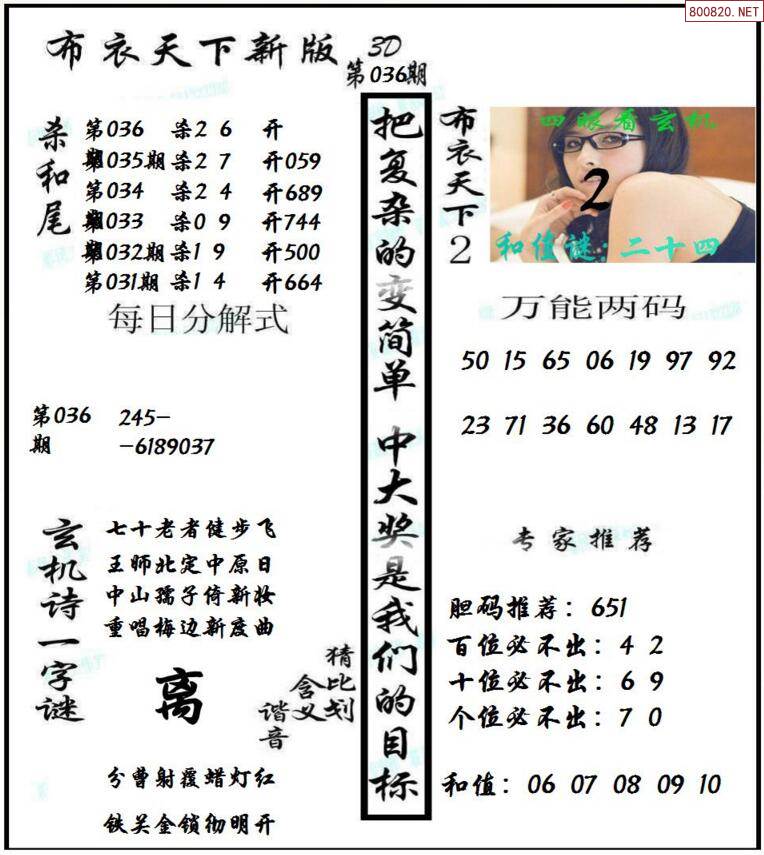 800820.NET
布衣天下新版 3D
第036期
杀和尾
第036期 杀2 6 开
第035期 杀2 7 开059
第034期 杀2 4 开689
第033期 杀0 9 开744
第032期 杀1 9 开500
第031期 杀1 4 开664
每日分解式
第036期
245-
-6189037
玄机诗一字谜
七十老者健步飞
王师北定中原日
中山孺子倚新妆
重唱梅边新度曲
离
猜比划
含义
谐音
分曹射覆蜡灯红
铁关金锁彻明开
把复杂的变简单 中大奖是我们的目标
布衣天下2
四眼看玄机
2
和值谜：二十四
万能两码
50 15 65 06 19 97 92
23 71 36 60 48 13 17
专家推荐
胆码推荐：651
百位必不出：4 2
十位必不出：6 9
个位必不出：7 0
和值：06 07 08 09 10